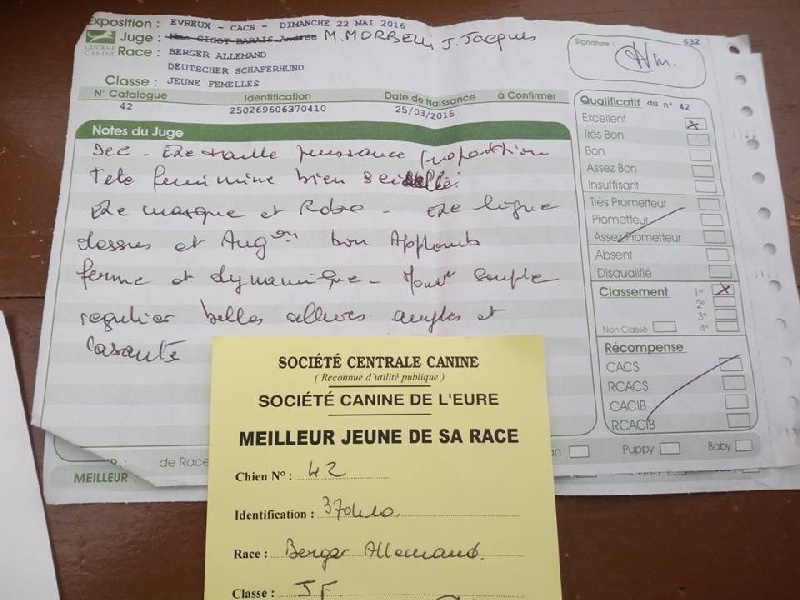 Exposition : EVREUX - CACS - DIMANCHE 22 MAI 2016
Juge : Mme GIGOT-BARAIS Andrée M. MORBELLI J. Jacques
CENTRALE CANINE
Race : BERGER ALLEMAND
DEUTSCHER SCHAFERHUND
Classe : JEUNE FEMELLES
N° Catalogue Identification Date de Naissance à Confirmer
42 250269606370410 25/03/2015
Signature : 632
Notes du Juge
Exc taille puissance proportion
Tete feminine bien
Exc masque et Robe - Exc ligne
dessus et Ang on bon Applombs
ferme et dynamique - souple
regulier belles allures amples et
rasante
Qualificatif du n° 42
Excellent
Très Bon
Bon
Assez Bon
Insuffisant
Très Prometteur
Prometteur
Assez Prometteur
Absent
Disqualifié
Classement 1er
2e
3e
Non Classé 4e
Récompense
CACS
RCACS
CACIB
RCACIB
de Race
MEILLEUR
Puppy Baby
SOCIÉTÉ CENTRALE CANINE
( Reconnue d'utilité publique )
SOCIÉTÉ CANINE DE L'EURE
MEILLEUR JEUNE DE SA RACE
Chien N° : 42
Identification :
Race : Berger Allemand.
Classe : JF